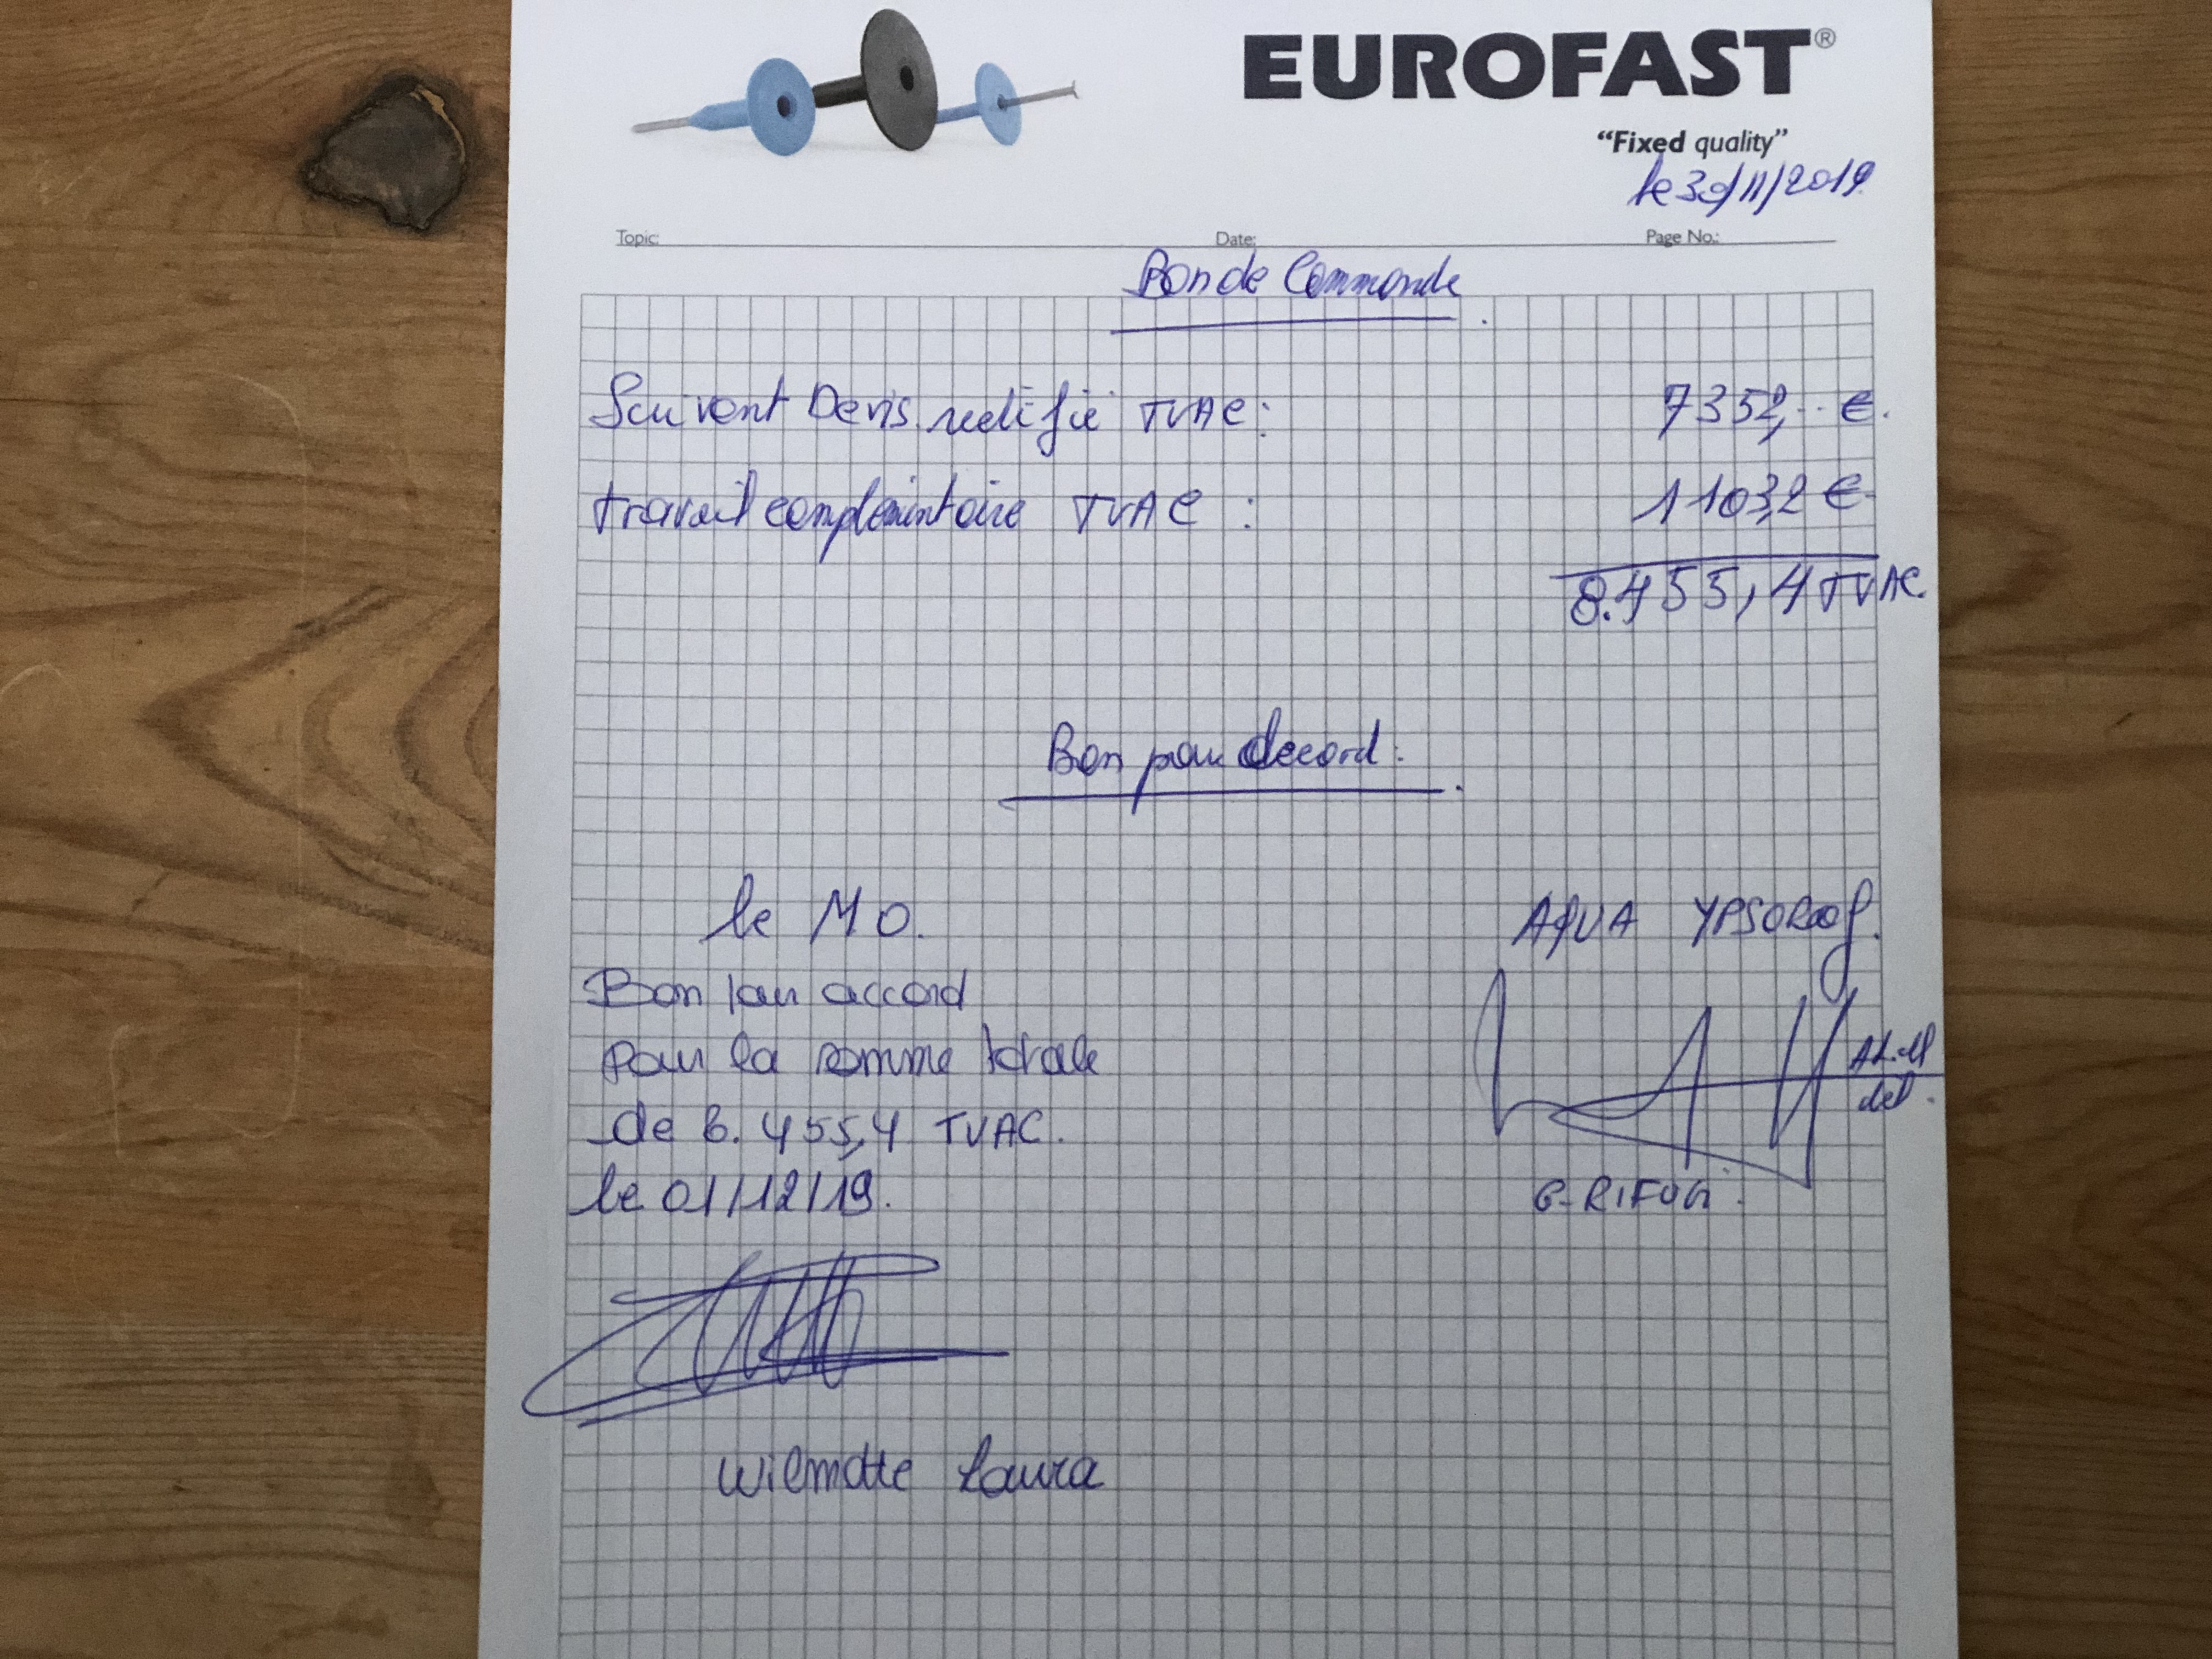 EUROFAST®
“Fixed quality”
le 30/11/2019
Topic: Date: Page No.:
Bon de Commande
Suivant Devis rectifié TVAC: 7352,-- €.
travail complémentaire TVAC : 1103,2 €
8.455,4 TVAC.
Bon pour accord :
le MO.
AQUA YPSOROOf.
Bon pour accord
pour la somme totale
de 8.455,4 TVAC.
le 01/12/19.
G-RIFON.
Wilmotte Laura